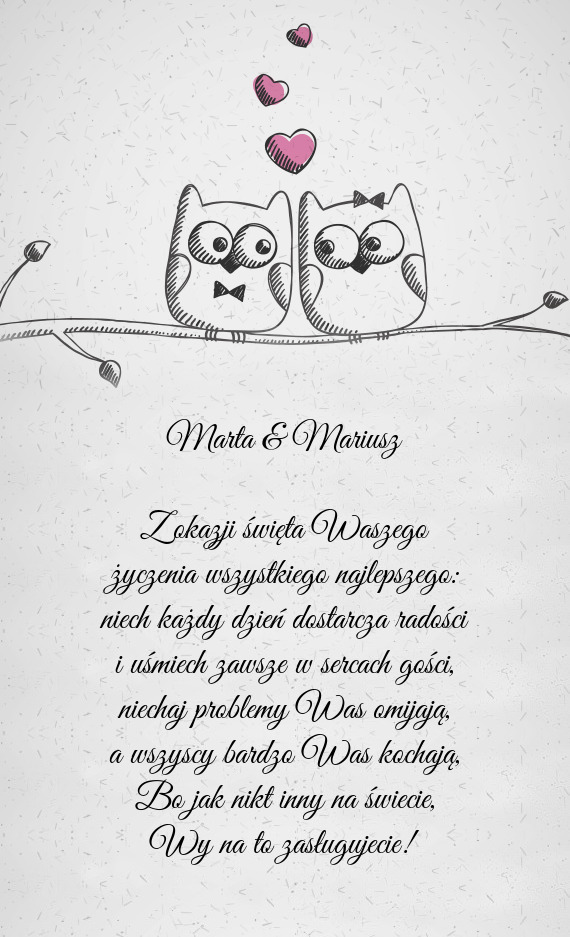 Marta & Mariusz
Z okazji święta Waszego
życzenia wszystkiego najlepszego:
niech każdy dzień dostarcza radości
i uśmiech zawsze w sercach gości,
niechaj problemy Was omijają,
a wszyscy bardzo Was kochają,
Bo jak nikt inny na świecie,
Wy na to zasługujecie!